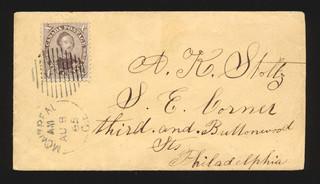 CANADA POSTAGE
A. K. Stoltz
S. E. Corner
third and Buttonwood
Sts
Philadelphia
MONTREAL
AM
AU 8
65